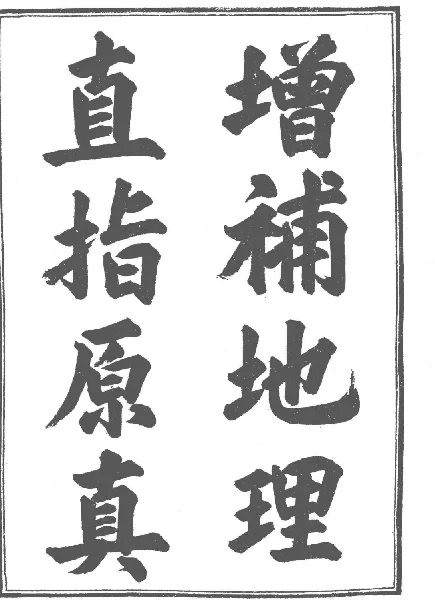 增補地理
直指原真